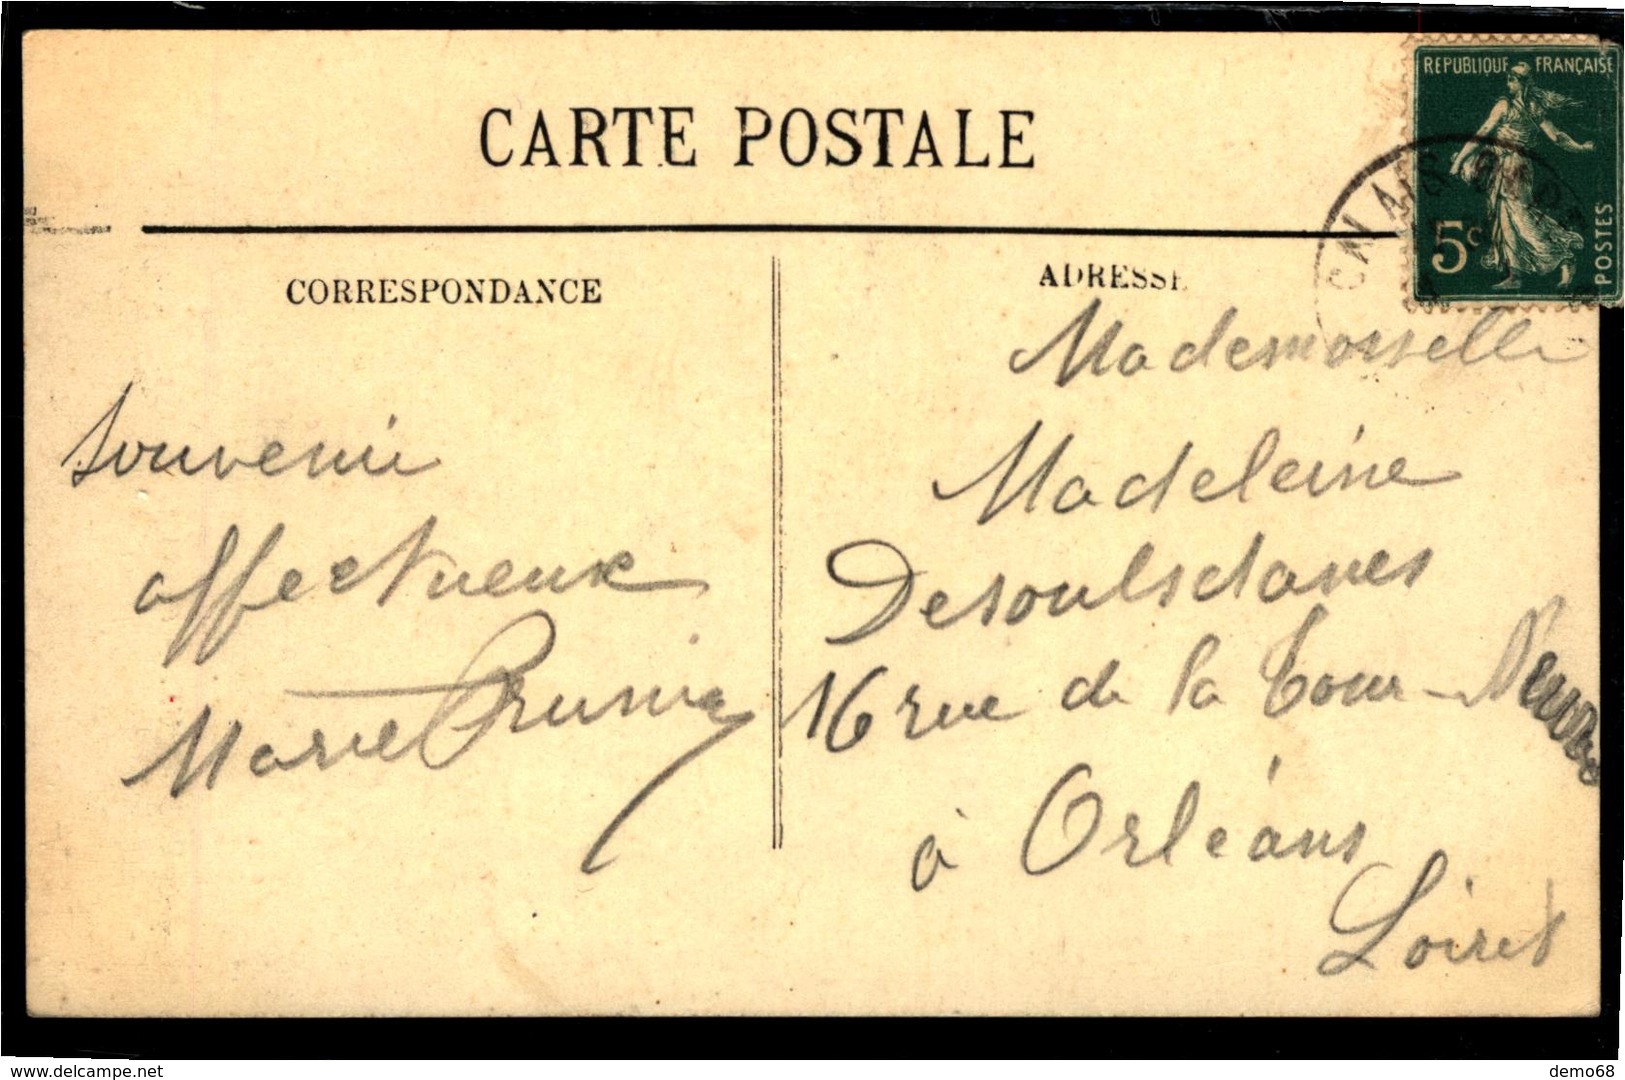 CARTE POSTALE
REPUBLIQUE FRANÇAISE
5c
POSTES
CORRESPONDANCE
Souvenir
affectueux
Marie
ADRESSE
Mademoiselle
Madeleine
16 rue de la Tour-Neuve
à Orléans
Loiret
www.delcampe.net
demo68